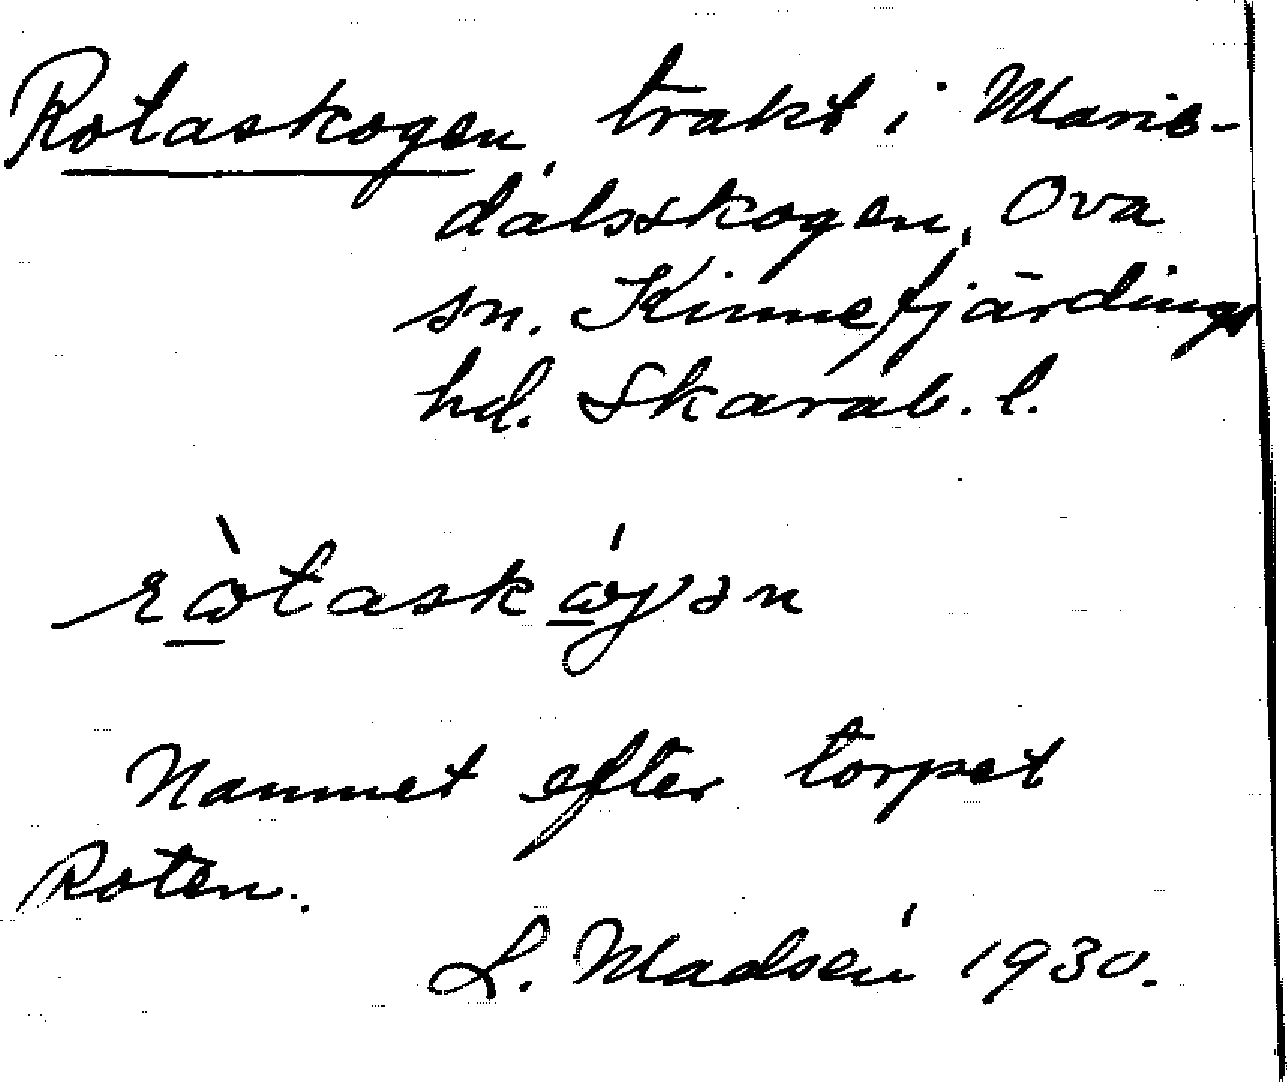 Rotaskogen, trakt i Marie-
dalsskogen, Ova
sn. Kinnefjärdings
hd. Skarab. l.
ròtaskógən
Namnet efter torpet
Roten.
L. Madsén 1930.